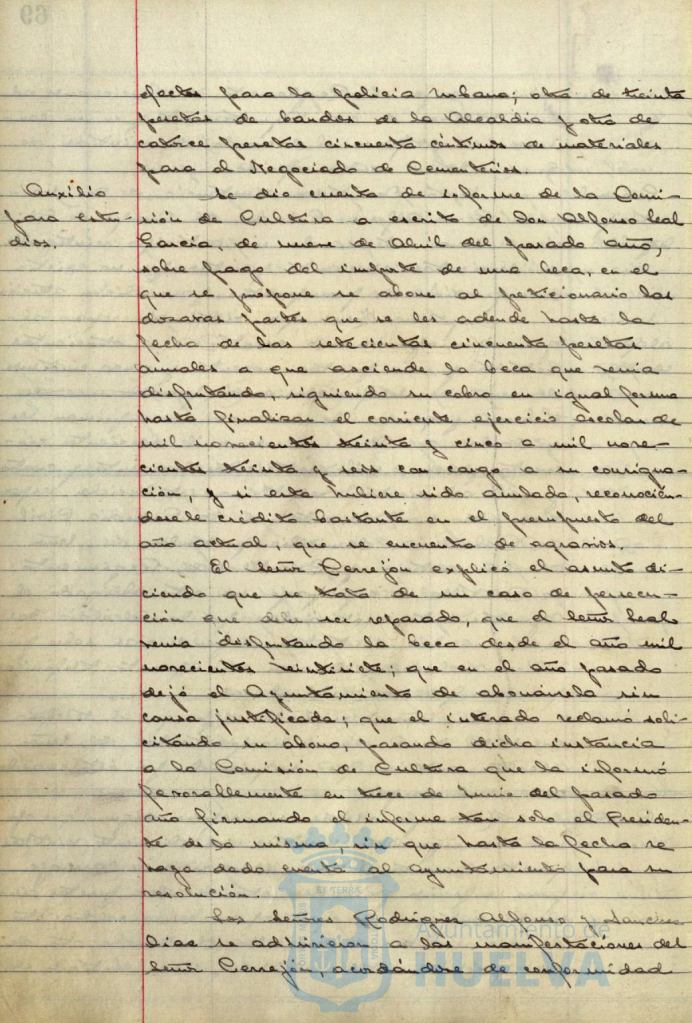 69
efectos para la policía urbana; otra de treinta
pesetas de bandos de la Alcaldía y otra de
catorce pesetas cincuenta céntimos de materiales
para el Negociado de Cementerios.
Auxilio
para estu-
dios.
Se dio cuenta de informe de la Comi-
sión de Cultura a escrito de Don Alfonso Leal
García, de nueve de Abril del pasado año,
sobre pago del importe de una beca, en el
que se propone se abone al peticionario las
dozavas partes que se les adeude hasta la
fecha de las setecientas cincuenta pesetas
anuales a que asciende la beca que venía
disfrutando, siguiendo su cobro en igual forma
hasta finalizar el corriente ejercicio escolar de
mil novecientos treinta y cinco a mil nove-
cientos treinta y seis con cargo a su consigna-
ción, y si esta hubiere sido anulada, reconocién-
dosele crédito bastante en el presupuesto del
año actual, que se encuentra de agravios.
El señor Cerrejón explicó el asunto di-
ciendo que se trata de un caso de persecu-
ción que debe ser reparado, que el señor Leal
venía disfrutando la beca desde el año mil
novecientos veintisiete; que en el año pasado
dejó el Ayuntamiento de abonársela sin
causa justificada; que el interado reclamó soli-
citando su abono, pasando dicha instancia
a la Comisión de Cultura que la informó
favorablemente en trece de Junio del pasado
año firmando el informe tan solo el Presiden-
te de la misma, sin que hasta la fecha se
haya dado cuenta al Ayuntamiento para su
resolución.
Los Señores Rodríguez Alfonso y Sánchez
Días se adhirieron a las manifestaciones del
señor Cerrejón, acordándose de conformidad
Ayuntamiento de
HUELVA